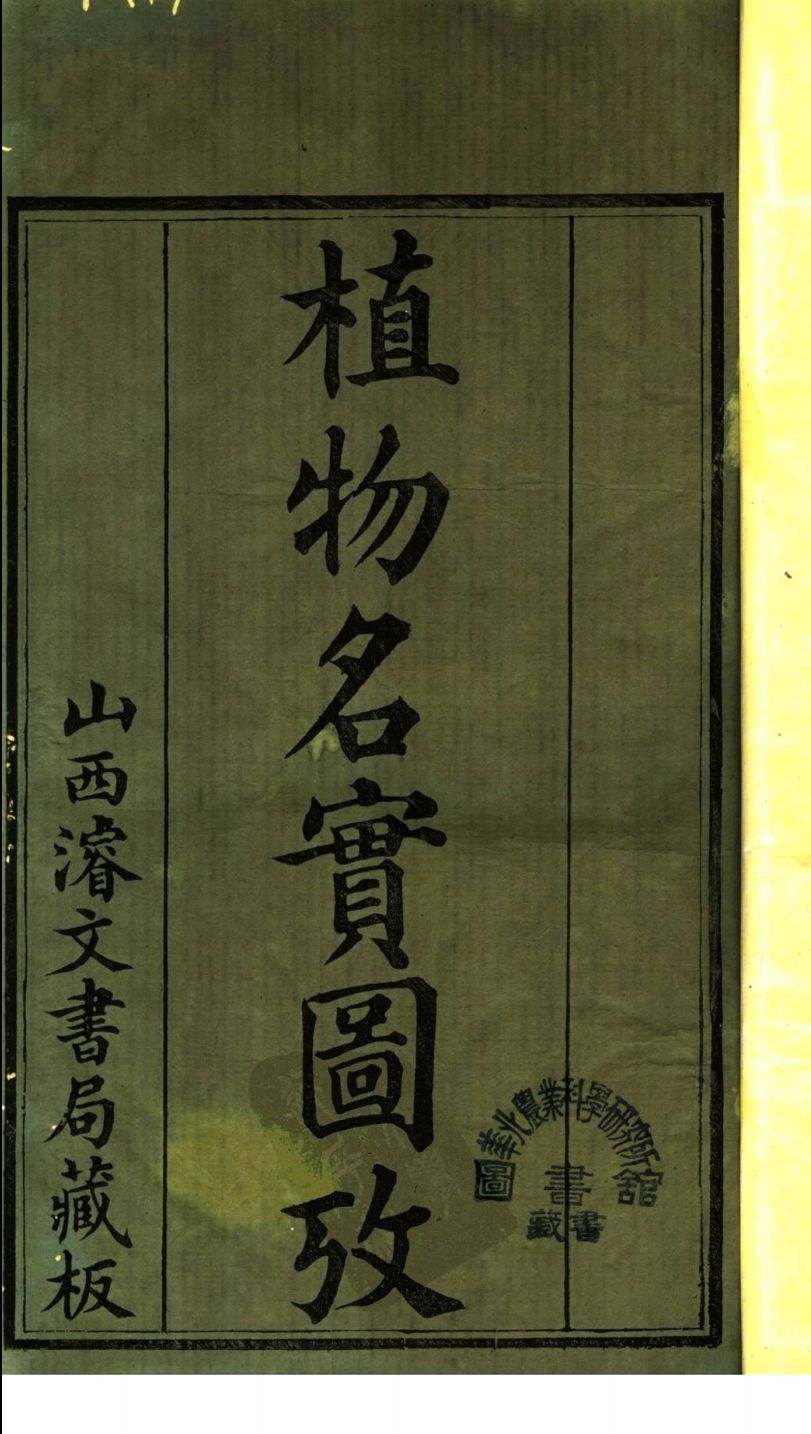 植物名實圖攷
山西濬文書局藏板
華北農業科學研究所
圖書館
藏書